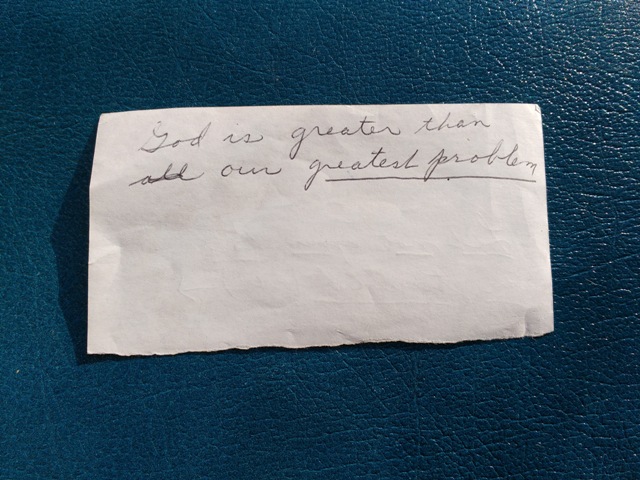 God is greater than
all our greatest problem